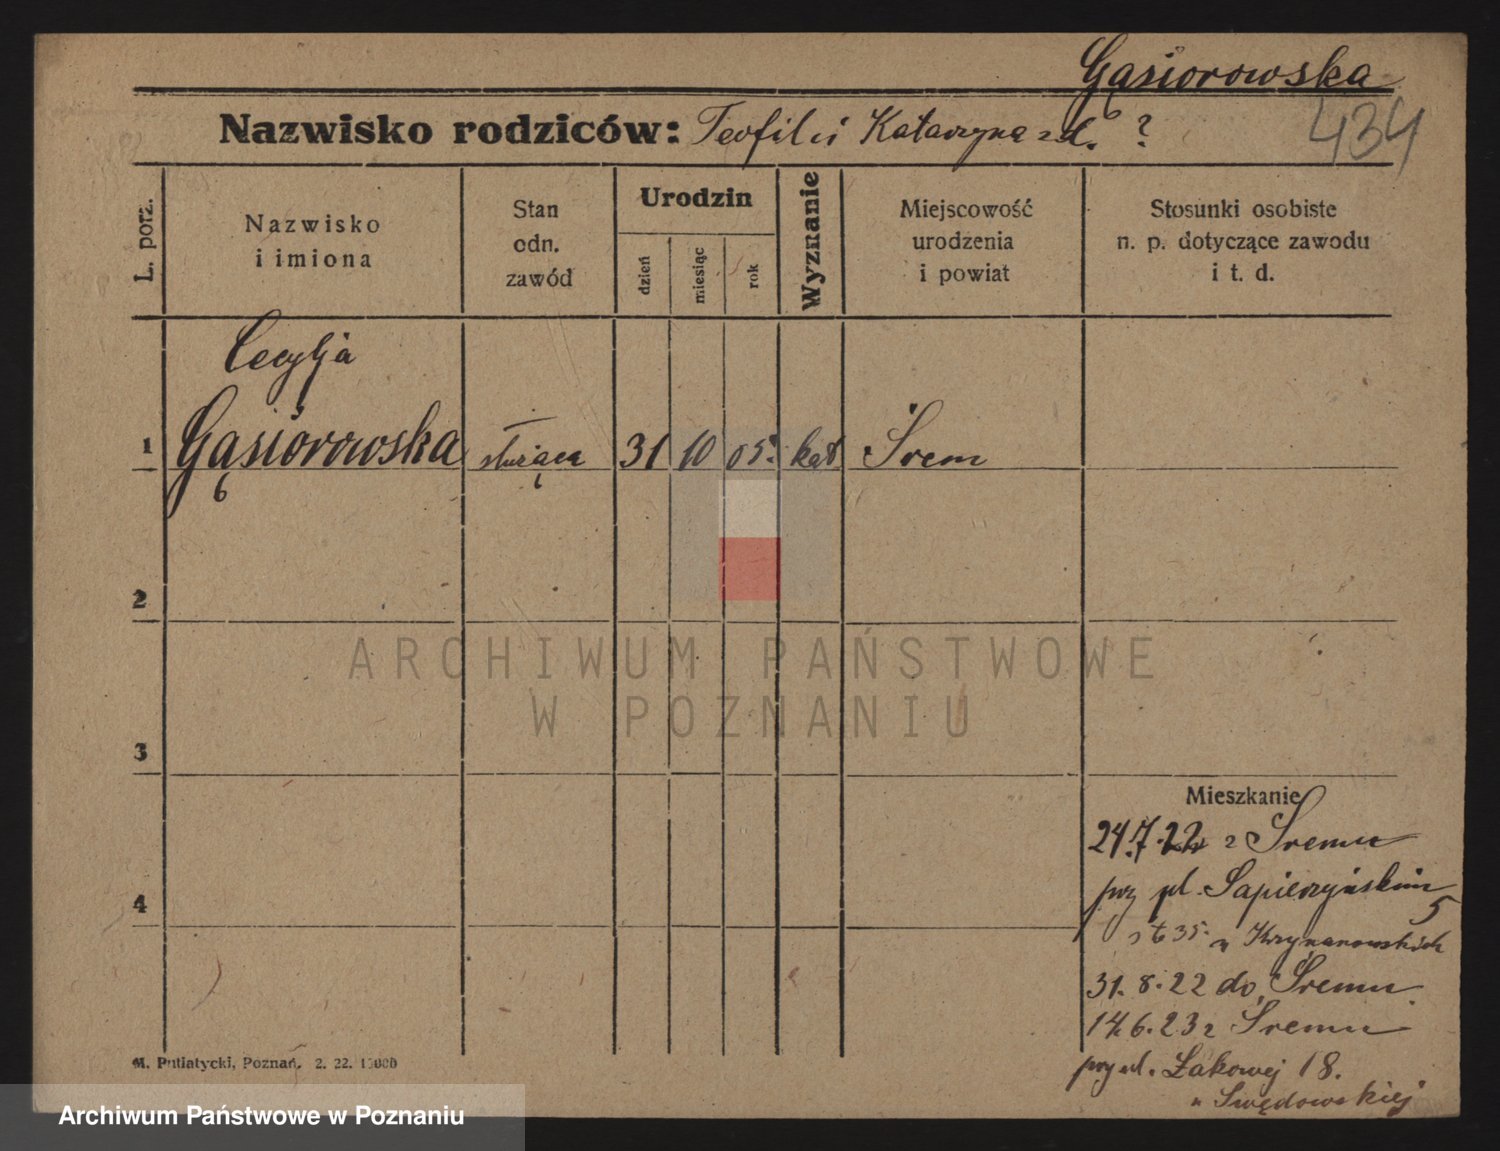 Gąsiorowska
Nazwisko rodziców: Teofil i Katarzyna zd. ?
434
L. porz.
Nazwisko
i imiona
Stan
odn.
zawód
Urodzin
dzień
miesiąc
rok
Wyznanie
Miejscowość
urodzenia
i powiat
Stosunki osobiste
n. p. dotyczące zawodu
i t. d.
Cecylja
1 Gąsiorowska służąca 31 10 05. kat Śrem
2
3
4
ARCHIWUM PAŃSTWOWE
W POZNANIU
Mieszkanie
24.7.22 z Śremu
przy pl. Sapieżyńskim
5
u Krzyżanowskich
31.8.22 do Śremu
14.6.23 z Śremu
przy ul. Łąkowej 18.
u Swędowskiej
M. Putiatycki, Poznań. 2. 22.
Archiwum Państwowe w Poznaniu